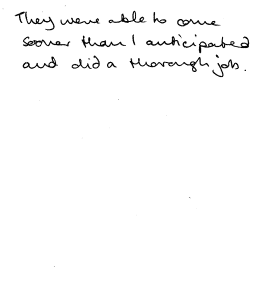 They were able to come
sooner than I anticipated
and did a thorough job.